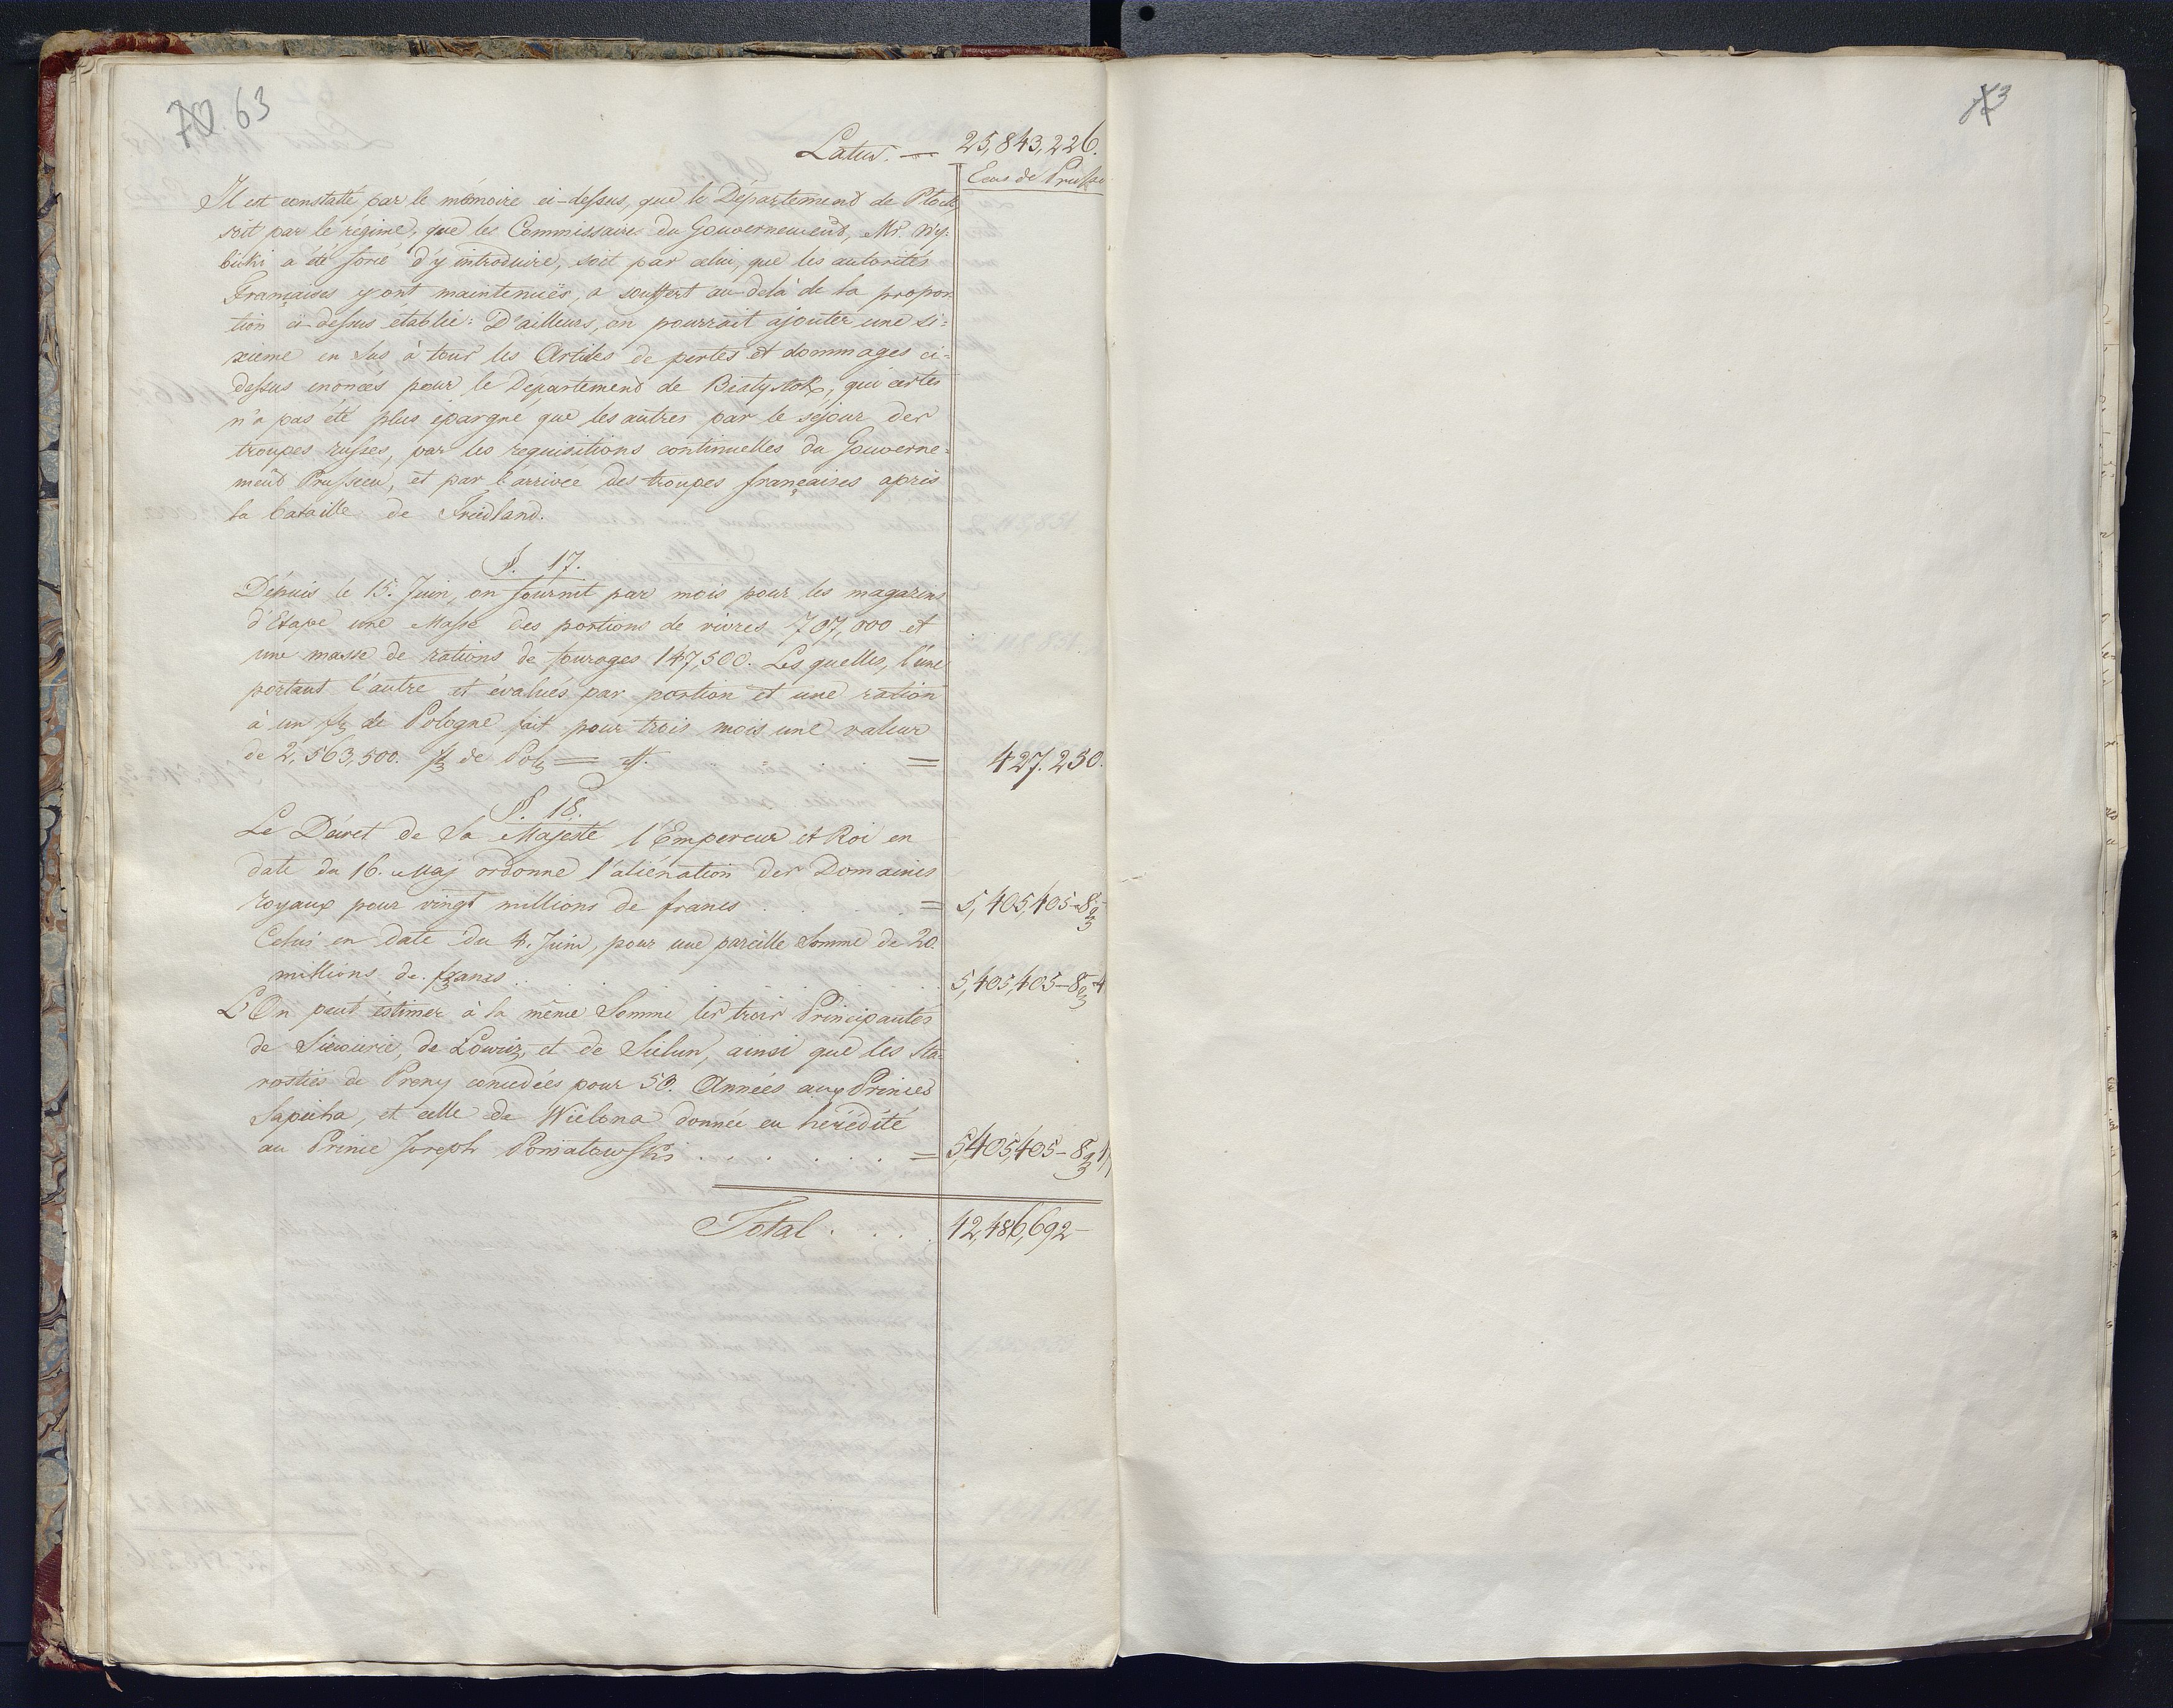 70 63
Latus. — 25,843,226.
Ecus de Prusse
Il est constatté par le mémoire ci-dessus, que le Département de Plock,
soit par le régime, que les Commissaires du Gouvernement, Mr. Wy-
bicki a été forcé d'y introduire, soit par celui, que les autorités
Françaises y ont maintenuës, a souffert au delà de la propor-
tion ci-dessus etablie: D'ailleurs, on pourrait ajouter une si-
xieme en sus à tous les Articles de pertes et dommages ci-
dessus enoncés pour le Departement de Bialystok, qui certes
n'a pas été plus épargné que les autres par le séjour des
troupes russes, par les requisitions continuelles du Gouverne-
ment Prussien, et par l'arrivée des troupes françaises après
la bataille de Friedland.
§. 17.
Dépuis le 15. Juin, on fournit par mois pour les magazins
d'Etape une Masse des portions de vivres 707,000 et
une masse de rations de fourages 147,500. Les quelles, l'une
portant l'autre et évalués par portion et une ration
à un fl de Pologne fait pour trois mois une valeur
de 2,563,500. fl de Pol = = 427.250.
§. 18.
Le Décret de Sa Majesté l'Empereur et Roi en
date du 16. Maj ordonne l'aliénation des Domaines
royaux pour vingt millions de francs . . . = 5,405,405-8g
Celui en date du 4. Juin, pour une pareille Somme de 20.
millions de francs . . . . . 5,405,405-8g4
L'On peut éstimer à la même Somme les trois Principautés
de Siewierie, de Lowicz, et de Sielun, ainsi que les Sta-
rosties de Preny concedées pour 50. Années aux Princes
Sapieha, et celle de Wielona donnée en hérédité
au Prince Joseph Poniatowski . . . . . = 5,405,405-8g
Total . . . . 42,486,692-